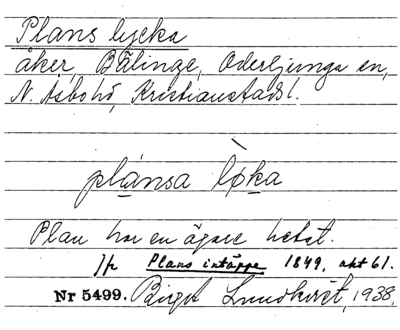 Plans lycka
åker, Bälinge, Oderljunga sn,
N. Åsbo hd, Kristianstads l.
plánsa lø̀ka
Plan har en ägare hetat.
Jfr Plans intäppe 1849, akt 61.
Nr 5499. Birgit Lundkvist, 1938.